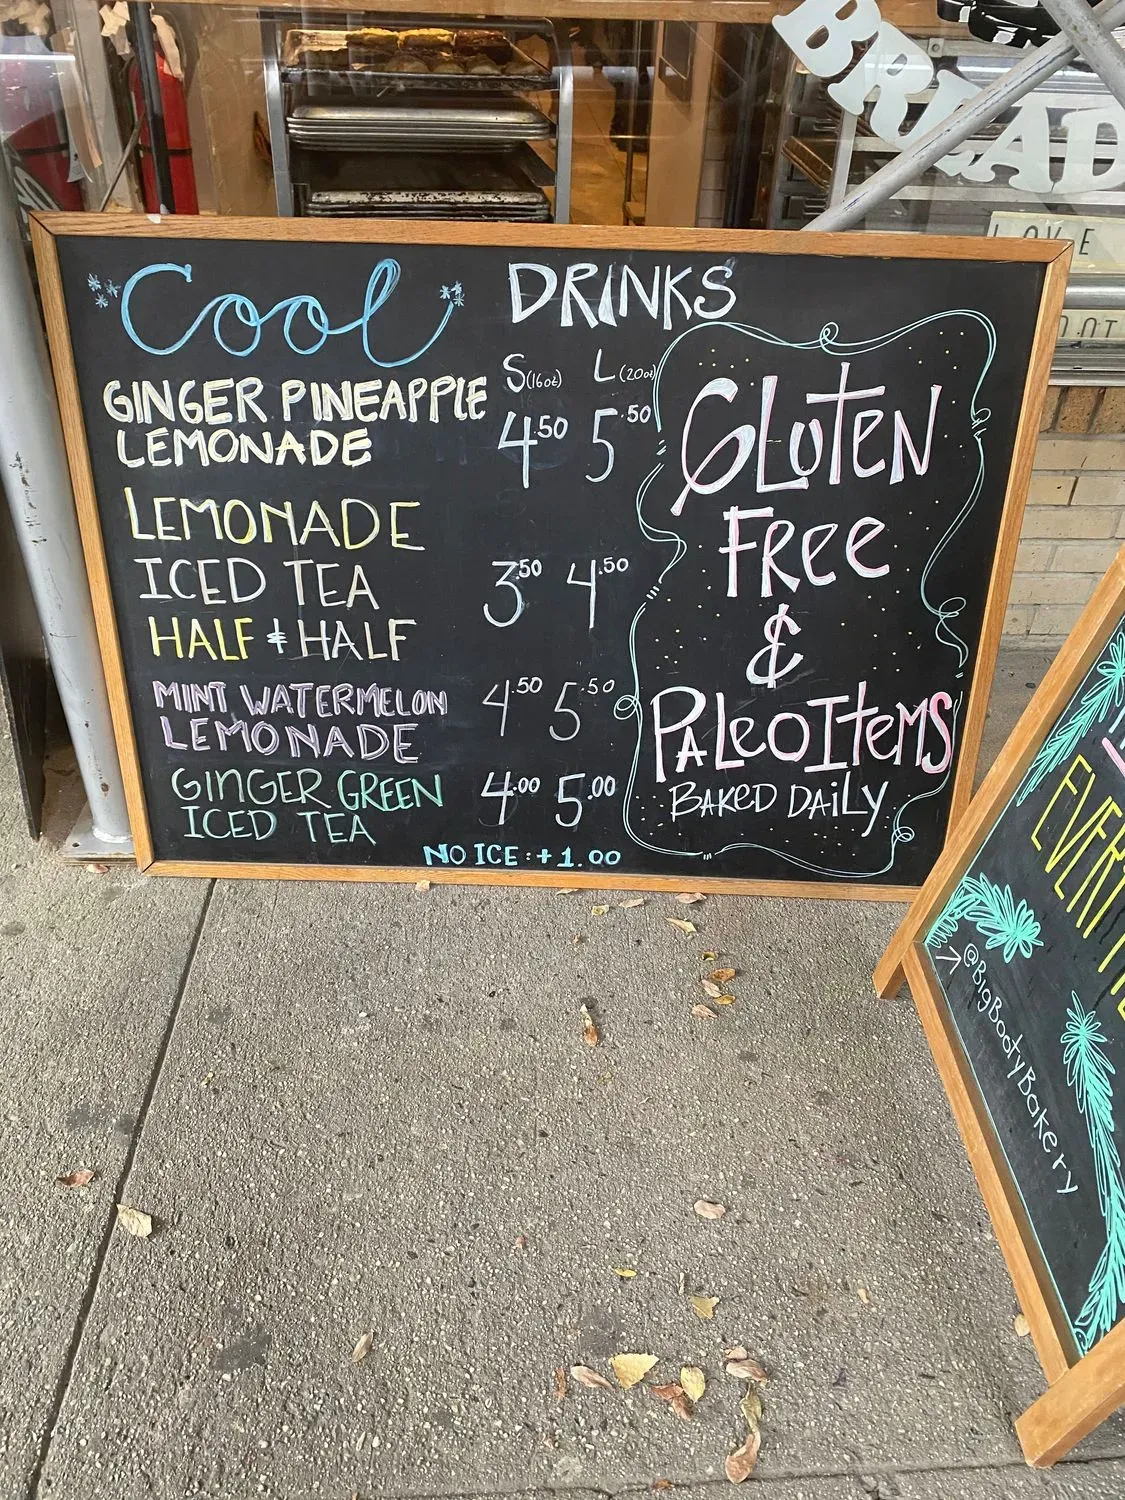 BREAD
LOVE
Cool DRINKS
S (16oz) L (20oz)
GINGER PINEAPPLE
LEMONADE 4.50 5.50
LEMONADE
ICED TEA 3.50 4.50
HALF & HALF
MINT WATERMELON
LEMONADE 4.50 5.50
GINGER GREEN
ICED TEA 4.00 5.00
NO ICE: +1.00
GLUTEN
FREE
&
PALEO ITEMS
BAKED DAILY
EVERY
@BigBootyBakery